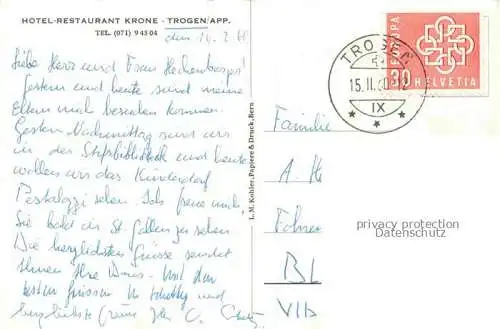 HOTEL-RESTAURANT KRONE - TROGEN/APP.
TEL. (071) 9 43 04
den 14. 2. 60
Liebe Herr und Frau
Gestern und heute sind meine
Eltern mich besuchen kommen.
Gestern Nachmittag sind wir
in der Stifsbibliothek und heute
wollen wir das Kinderdorf
Pestalozzi sehen. Ich freue mich,
Sie bald in St. Gallen zu sehen.
Die herzlichsten Grüsse sendet
Ihnen Ihre Doris - Mit den
besten Grüssen
herzlichste Grüsse Ihr C.
L. M. Kohler, Papiere & Druck, Bern
TROGEN
15. II. 60
IX
EUROPA
30
HELVETIA
Familie
A. H
Fohrer
BL
VIIb
privacy protection
Datenschutz